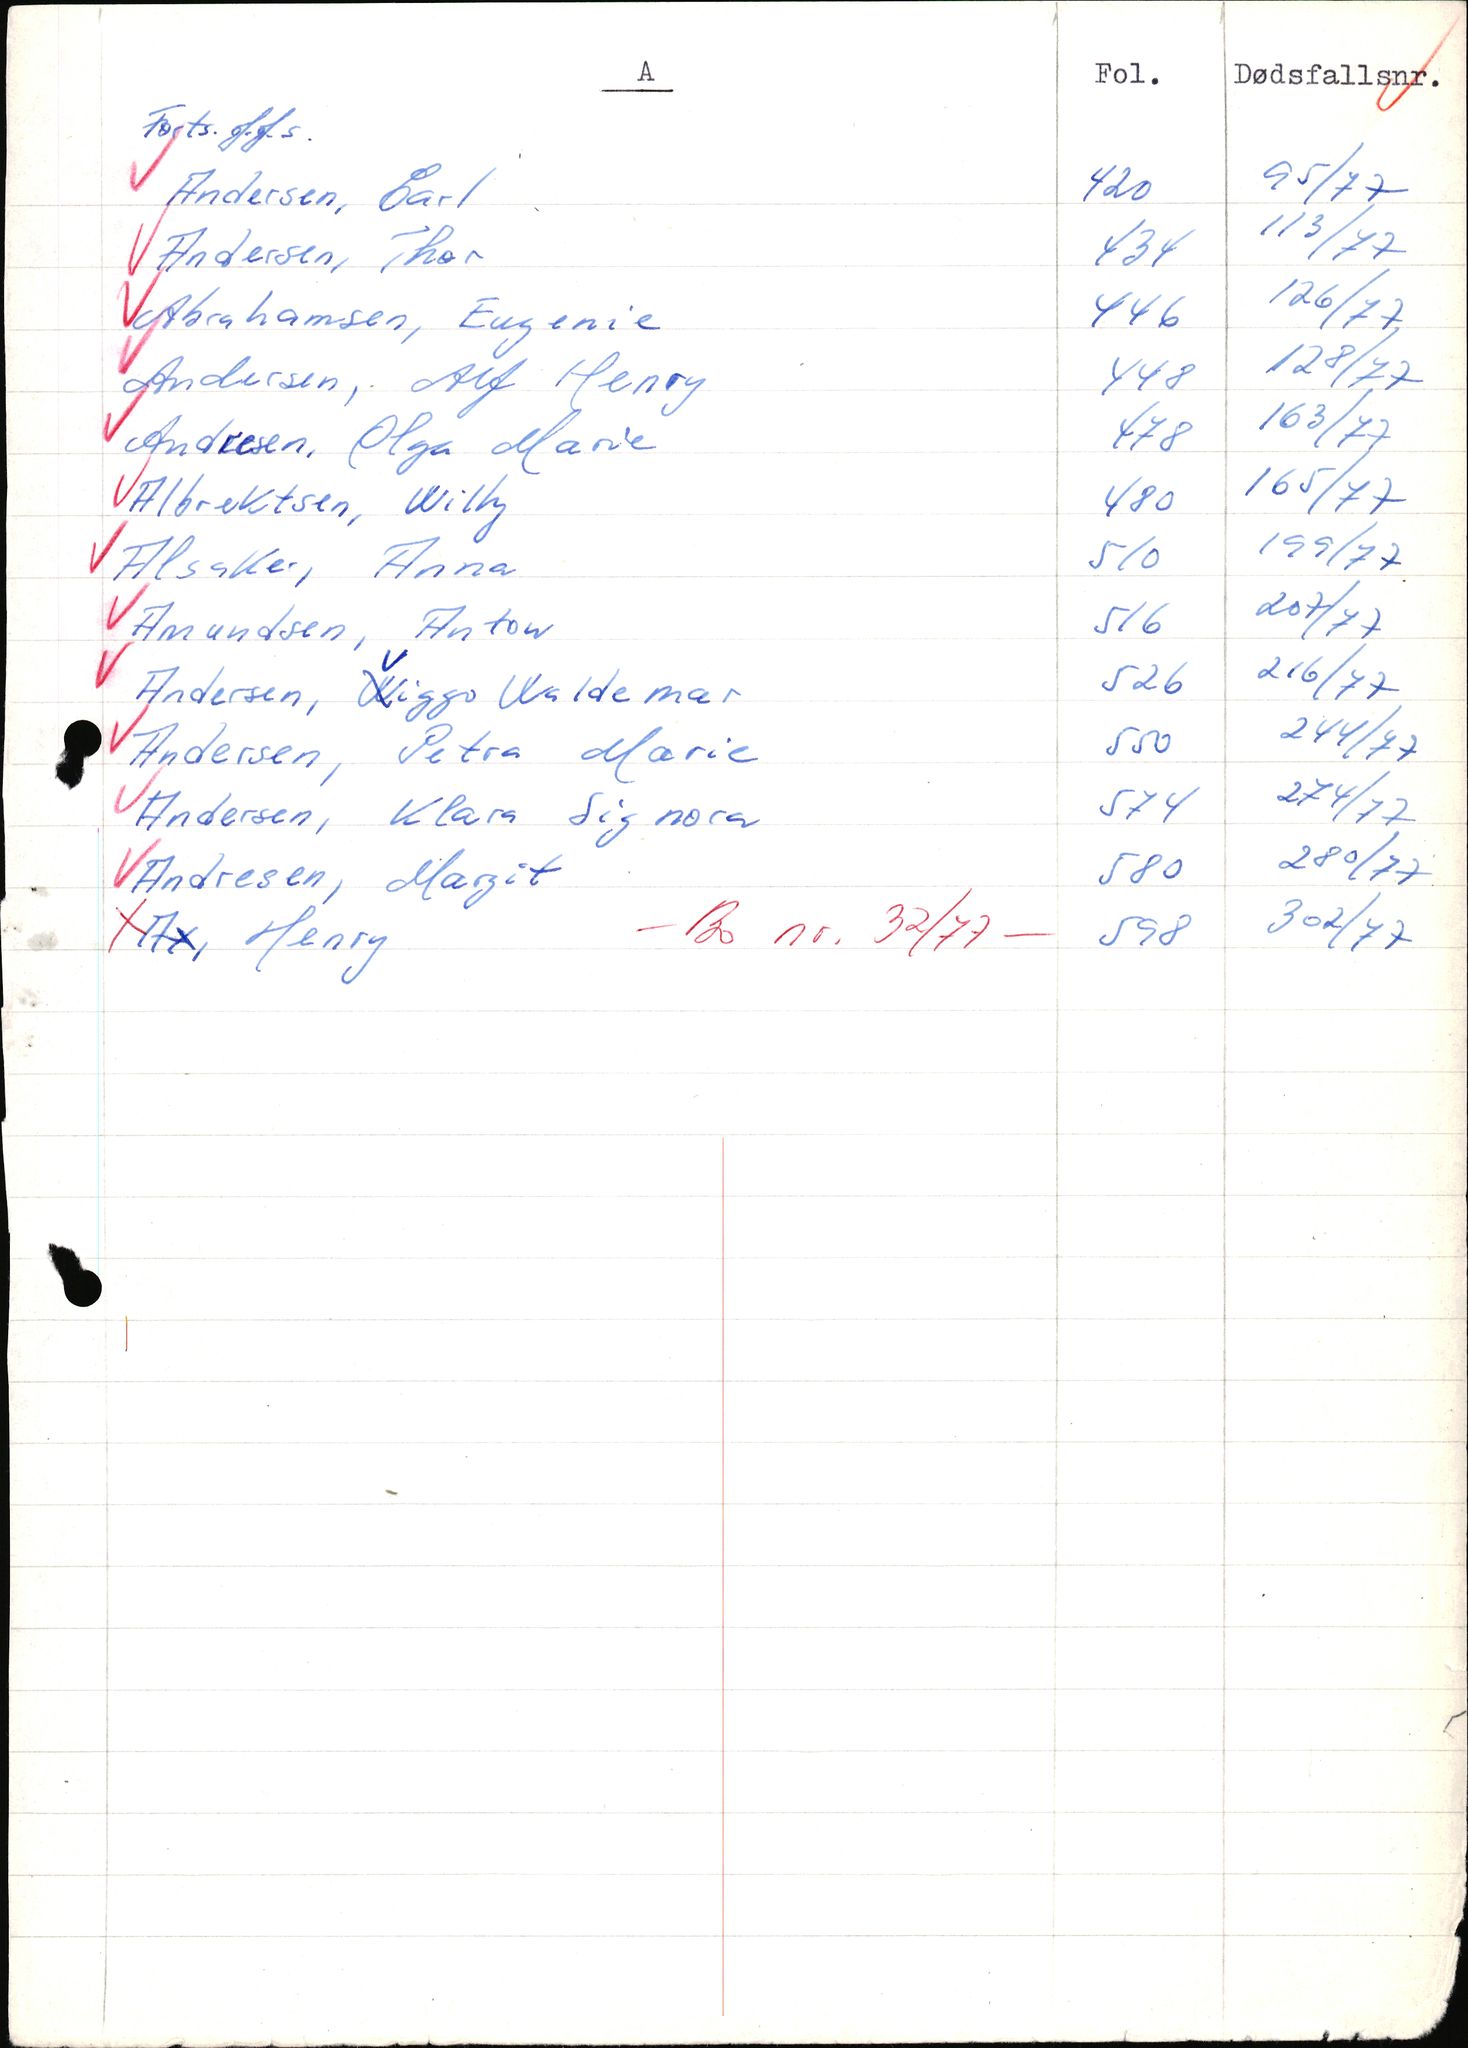 A Fol. Dødsfallsnr.
Forts. f.f.s.
Andersen, Earl 420 95/77
Andersen, Thor 434 113/77
Abrahamsen, Eugenie 446 126/77
Andersen, Alf Henry 448 128/77
Andresen, Olga Marie 478 163/77
Albrektsen, Willy 480 165/77
Alsaker, Anna 510 199/77
Amundsen, Anton 516 207/77
Andersen, Viggo Waldemar 526 216/77
Andersen, Petra Marie 550 244/77
Andersen, Klara Signora 574 274/77
Andresen, Margit 580 280/77
Ax, Henry — Bo nr. 32/77 — 598 302/77